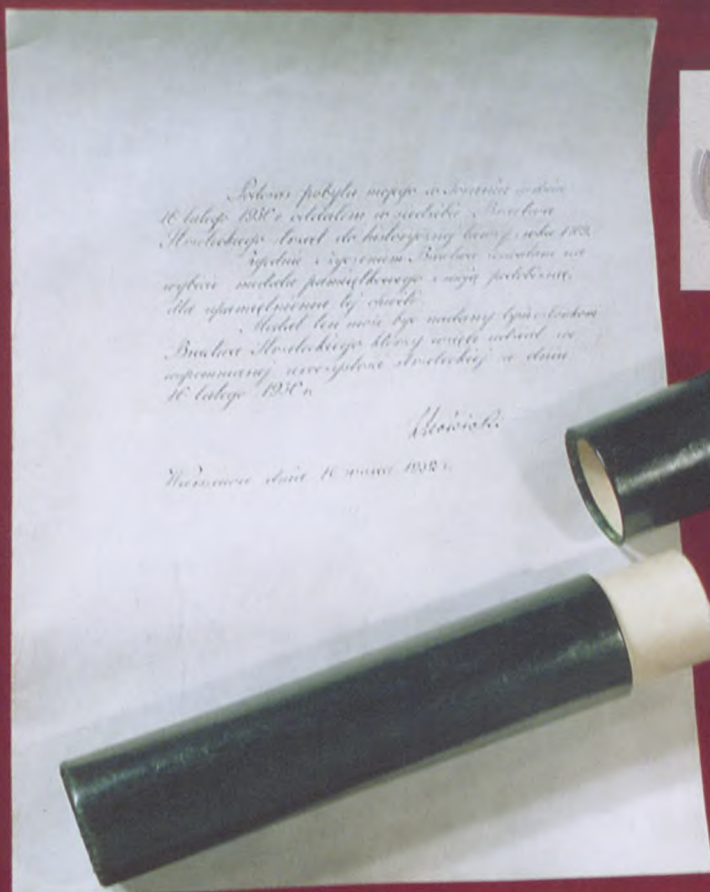 Podczas pobytu mojego w Toruniu w dniu
16 lutego 1930 r. oddałem w siedzibie Bractwa
Strzeleckiego strzał do historycznej tarczy z roku
Zgodnie z życzeniem Bractwa zezwalam na
wybicie medalu pamiątkowego z moją podobizną,
dla upamiętnienia tej chwili.
Medal ten może być nadany tym członkom
Bractwa Strzeleckiego którzy wzięli udział we
wspomnianej uroczystości strzeleckiej w dniu
16 lutego 1930 r.
IMościcki
Warszawa dnia 10 marca r.